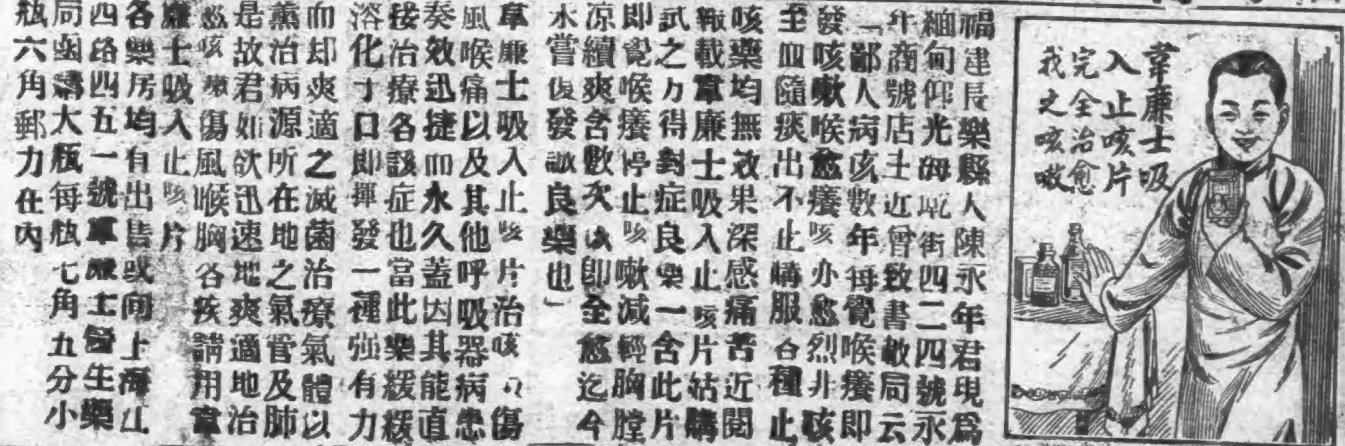 韋廉士吸
入止咳片
完全治愈
我之咳嗽
福建長樂縣人陳永年君現爲
緬甸仰光海坭街四二四號永
年商號店主近曾致書敝局云
「鄙人病咳數年每覺喉癢即
發咳嗽喉愈癢咳亦愈烈非咳
至血隨痰出不止購服各種止
咳藥均無效果深感痛苦近閱
報載韋廉士吸入止咳片姑購
試之乃得對症良藥一含此片
即覺喉癢停止咳嗽減輕胸膛
凉續爽含數次以即全愈迄今
未嘗復發誠良藥也」
韋廉士吸入止咳片治咳 傷
風喉痛以及其他呼吸器病患
奏效迅捷而永久蓋因其能直
接治療各該症也當此藥緩緩
溶化于口即揮發一種强有力
而却爽適之滅菌治療氣體以
薰治病源所在地之氣管及肺
是故君如欲迅速地爽適地治
愈咳嗽傷風喉胸各疾請用韋
廉士吸入止咳片
各藥房均有出售或向上海江
四路四五一號韋廉士醫生藥
局函購大瓶每瓶七角五分小
瓶六角郵力在內